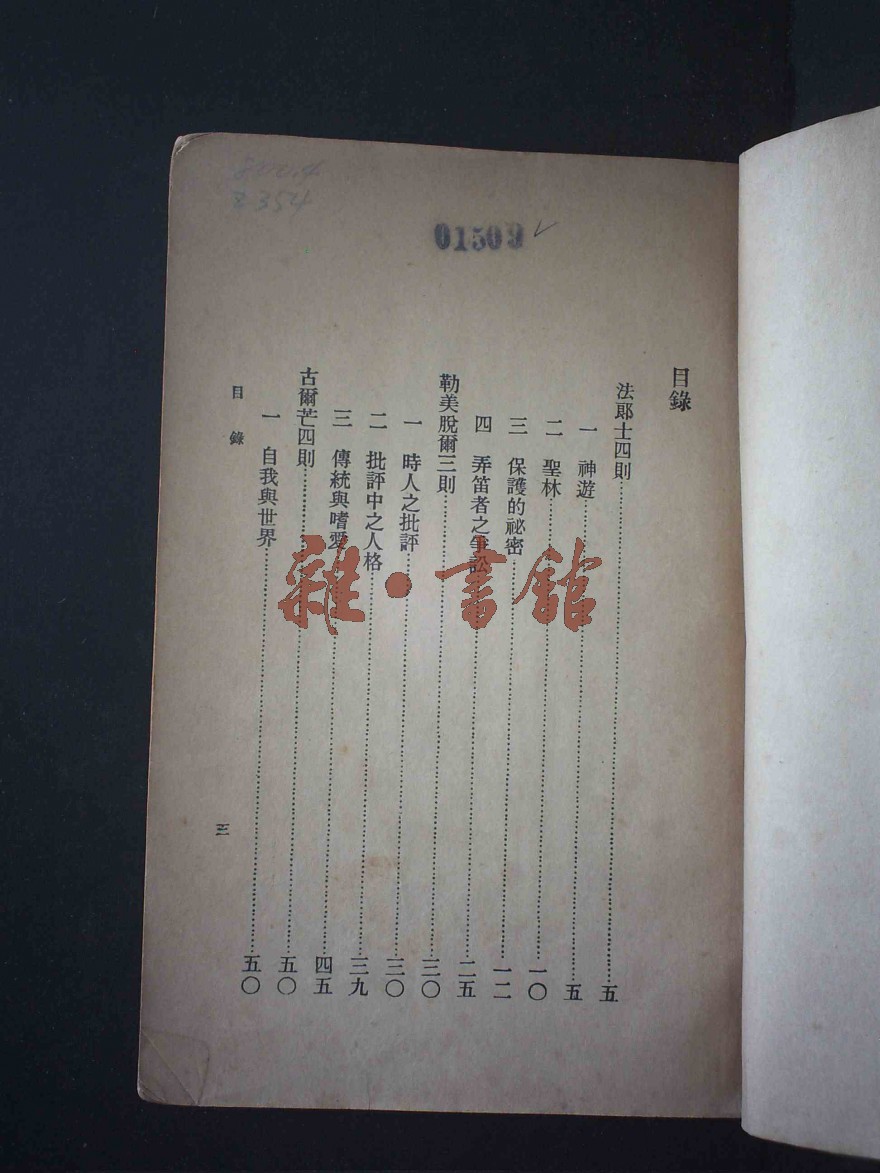 01509
目錄
法郎士四則……五
一 神遊……五
二 聖林……一〇
三 保護的祕密……一二
四 弄笛者之爭訟……二五
勒美脫爾三則……三〇
一 時人之批評……三〇
二 批評中之人格……三九
三 傳統與嗜愛……四五
古爾芒四則……五〇
一 自我與世界……五〇
目錄
三
雜·書館
2354